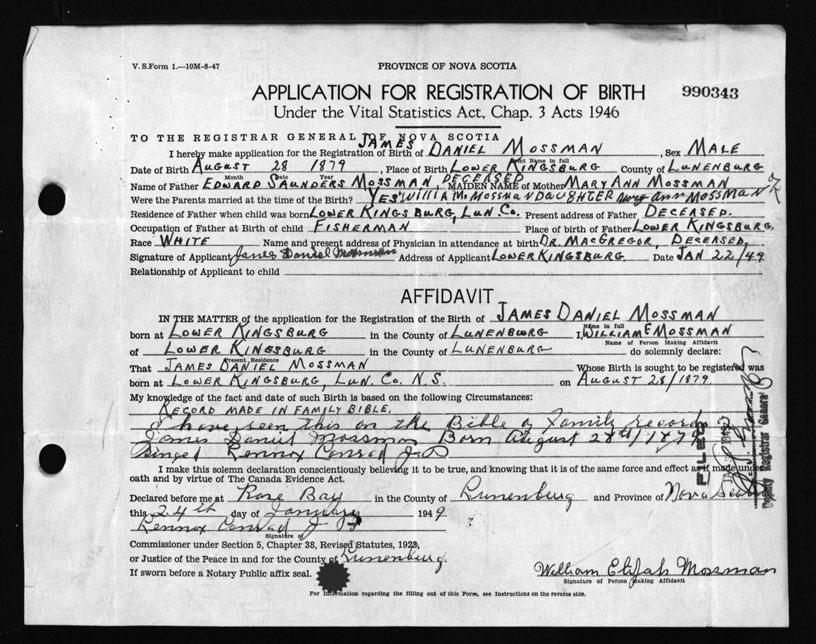 V. S. Form 1.—10M-8-47
PROVINCE OF NOVA SCOTIA
APPLICATION FOR REGISTRATION OF BIRTH
990343
Under the Vital Statistics Act, Chap. 3 Acts 1946
TO THE REGISTRAR GENERAL OF NOVA SCOTIA
JAMES
I hereby make application for the Registration of Birth of DANIEL MOSSMAN, Sex MALE
Date of Birth AUGUST 28 1879, Place of Birth LOWER KINGSBURG County of LUNENBURG
Month Date Year Name in full
DECEASED
Name of Father EDWARD SAUNDERS MOSSMAN, MAIDEN NAME of Mother MARY ANN MOSSMAN
Were the Parents married at the time of the Birth? YES WILLIAM MOSSMAN DAUGHTER Mary Ann MOSSMAN
Residence of Father when child was born LOWER KINGSBURG, LUN. CO. Present address of Father DECEASED.
Occupation of Father at Birth of child FISHERMAN Place of birth of Father LOWER KINGSBURG.
Race WHITE Name and present address of Physician in attendance at birth DR. MACGREGOR, DECEASED,
Signature of Applicant James Daniel Mossman Address of Applicant LOWER KINGSBURG Date JAN 22/49
Relationship of Applicant to child
AFFIDAVIT
IN THE MATTER of the application for the Registration of the Birth of JAMES DANIEL MOSSMAN
Name in full
born at LOWER KINGSBURG in the County of LUNENBURG I, WILLIAM E MOSSMAN
Name of Person Making Affidavit
of LOWER KINGSBURG in the County of LUNENBURG do solemnly declare:
Present Residence
That JAMES DANIEL MOSSMAN Whose Birth is sought to be registered was
born at LOWER KINGSBURG, LUN. CO. N.S. on AUGUST 28/1879.
My knowledge of the fact and date of such Birth is based on the following Circumstances:
RECORD MADE IN FAMILY BIBLE,
I have seen this on the Bible of Family record
James Daniel Mossman Born August 28th/1879
Singed Lennox Conrad J P
I make this solemn declaration conscientiously believing it to be true, and knowing that it is of the same force and effect as if made under
oath and by virtue of The Canada Evidence Act.
Declared before me at Rose Bay in the County of Lunenburg and Province of Nova Scotia
this 24th day of January 1949
Lennox Conrad J P
Signature of
Commissioner under Section 5, Chapter 38, Revised Statutes, 1923,
or Justice of the Peace in and for the County of Lunenburg.
If sworn before a Notary Public affix seal.
William Elijah Mossman
Signature of Person Making Affidavit
For Information regarding the filling out of this Form, see Instructions on the reverse side.
FILED
Deputy Registrar General